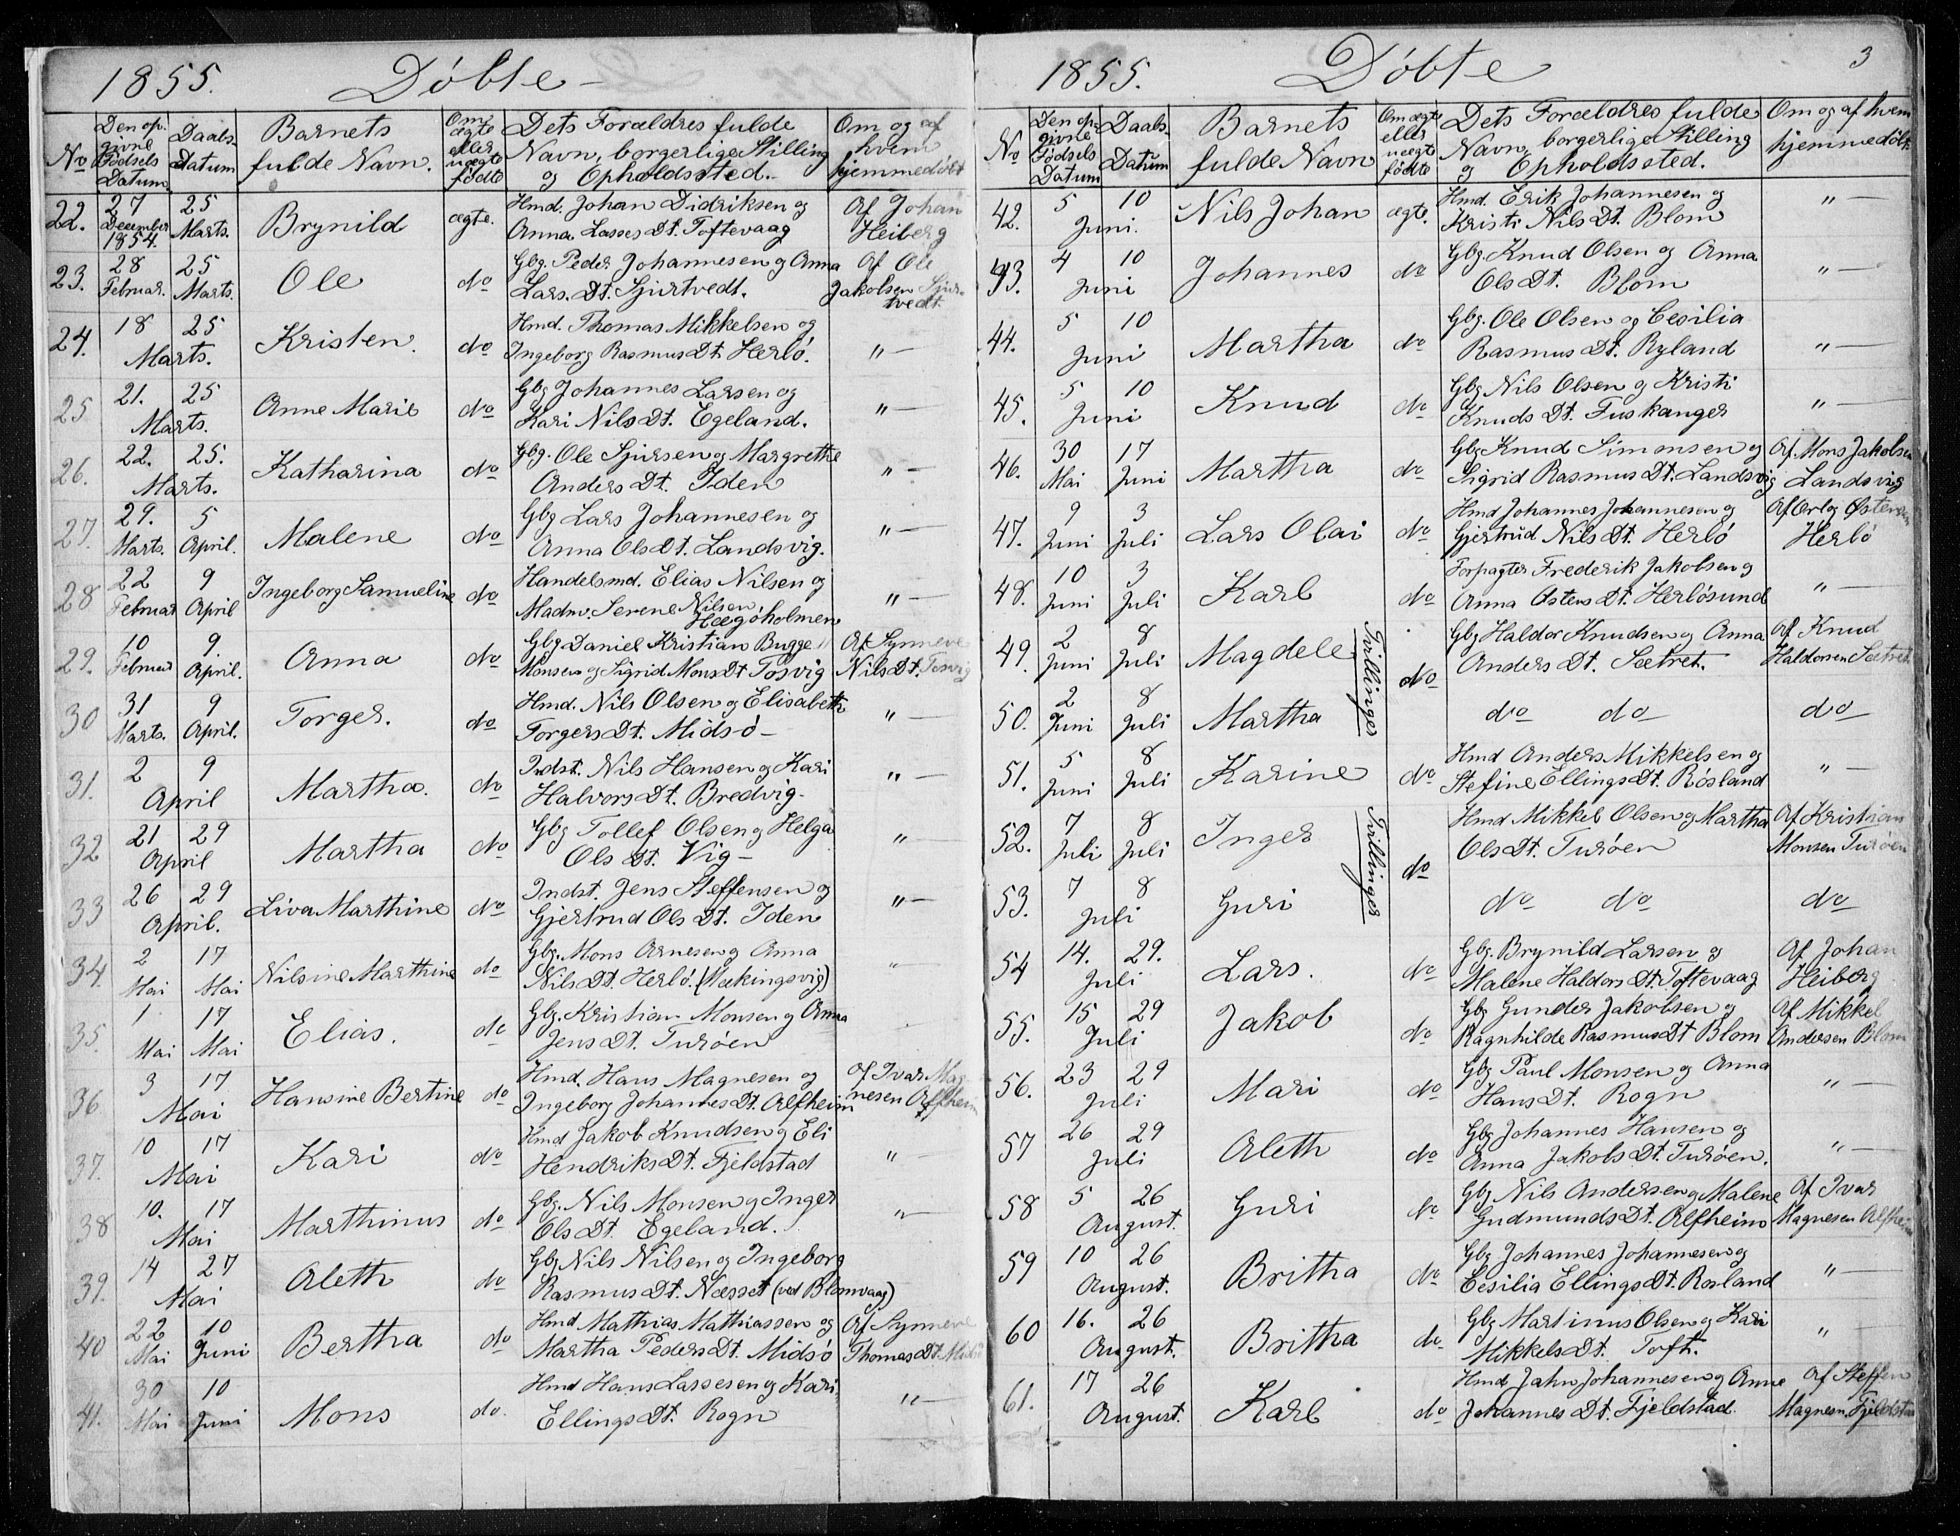 1855. Døbte
No
Den opgivne Fødsels Datum
Daabs-Datum
Barnets fulde Navn.
Om ægte eller uægte fødte
Dets Forældres fulde Navn, borgerlige Stilling og Opholdssted.
Om og af hvem hjemmedøbt
22. 27 December 1854. 25 Marts. Brynild ægte. Hmd. Johan Didriksen og Af Johan
Anna Lasses Dt. Toftevaag Heiberg
23. 28 Februar. 25 Marts. Ole do Gbg. Peder Johannesen og Anna Af Ole
Lars. Dt. Sjurtvedt. Jakobsen Sjurtvedt.
24. 18 25 Marts. Kristen. do Hmd. Thomas Mikkelsen og
Ingeborg Rasmus Dt. Herlö. "—
25 21. 25 Marts. Anne Marie do Gbg Johannes Larsen og
Kari Nils Dt. Egeland. "—
26. 22. 25. Marts. Katharina do Gbg. Ole Sjursen og Margrethe
Anders Dt. Iden "—
27. 29. Marts. 5 April. Malene do Gbg Lars Johannesen og
Anna Ols Dt. Landsvig. "—
28 22 Februar 9 April Ingeborg Samueline do Handelsmd. Elias Nilsen og
Madm. Serene Nilsen Hægöholmen "—
29. 10 Februar 9 April. Anna do Gbg Daniel Kristian Bugge Af Synneve
Monsen og Sigrid Mons Dt Tosvig Nils Dt. Tosvig
30 31 Marts. 9 April. Torger. do Hmd. Nils Olsen og Elisabeth
Torgers Dt. Midsö— "—
31. 2 9 April Martha. do Indst. Nils Hansen og Kari
Halvors Dt. Bredvig— "—
32 21 29 April Martha do Gbg Tollef Olsen og Helga
Ols Dt. Vig— "—
33 26 29 April. Liva Marthine do Indst. Jens Steffensen og
Gjertrud Ols Dt. Iden "—
34. 2 Mai 17 Mai Nilsine Marthine do Gbg. Mons Arnesen og Anna
Nils Dt. Herlö. "
35. 1 Mai 17 Mai Elias. do Gbg. Kristian Monsen og Anna
Jens Dt. Turöen
36. 3 17 Mai Hansine Bertine do Hmd. Hans Magnesen og Af Ivar Mag-
Ingeborg Johannes Dt. Alfheim nesen Alfheim
37. 10 17 Mai Kari do Hmd Jakob Knudsen og Eli
Hendriks Dt. Fjeldstad "—
38 10. 17 Mai Marthinus do Gbg. Nils Monsen og Inger
Ols Dt. Egeland. "—
39. 14 27 Mai Aleth do Gbg Nils Nilsen og Ingeborg
Rasmus Dt. Næsset (ved Blomvaag)
40 22 Mai 10 Juni Bertha do Hmd Mathias Mathiassen og Af Synneve
Martha Peders Dt. Midsö Thomas Dt. Midsö
41. 30 Mai 10 Juni Mons do. Hmd Hans Lassesen og Kari
Ellings Dt. Rogn "—
1855. Døbte 3
No
Den opgivne Fødsels Datum
Daabs-Datum
Barnets fulde Navn
Om ægte eller uægte fødte
Dets Forældres fulde Navn, borgerlige Stilling og Opholdssted.
Om og af hvem hjemmedøbt
42. 5 10 Juni. Nils Johan ægte. Hmd. Erik Johannesen og
Kristi Nils Dt. Blom "—
43. 4 10 Juni Johannes do Gbg. Knud Olsen og Anna
Ols Dt. Blom "—
44. 5 10 Juni Martha do Gbg. Ole Olsen og Cesilia
Rasmus Dt. Ryland "—
45. 5 10 Juni Knud do Gbg Nils Olsen og Kristi
Knuds Dt. Fuskanger "—
46. 30 Mai 17 Juni Martha do Gbg Knud Simonsen og Af Mons Jakobsen
Sigrid Rasmus Dt. Landsvig Landsvig
47. 9 Juni 3 Juli Lars Olai do Hmd Johannes Johannesen og
Gjertrud Nils Dt. Herlö Herlö
48. 10 Juni 3 Juli Karl do Forpagter Frederik Jakobsen og
Anna Ostens Dt. Herlösund "—
49. 2 Juni 8 Juli Magdele Tvillinger do Gbg Haldor Knudsen og Anna Af Knud
Anders Dt. Sætret. Haldorsen Sætret.
50. 2 Juni 8 Juli Martha do do do
51. 5 Juni 8 Juli Karine do Hmd Anders Mikkelsen og
Stefine Ellings Dt. Rosland "—
52. 7 Juli 8 Juli Inger Tvillinger do Hmd Mikkel Olsen og Martha Af Kristian
Ols Dt. Turöen Monsen Turöen
53. 7 8 Juli Guri do do do
54 14. 29. Juli Lars. do Gbg. Brynild Larsen og Af Johan
Malene Haldors Dt. Toftevaag Heiberg
55. 15 29 Juli Jakob do Gbg Gunder Jakobsen og Af Mikkel
Ragnhilde Rasmus Dt Blom Andersen Blom
56. 23 29 Juli Mari do Gbg Paul Monsen og Anna
Hans Dt. Rogn "—
57 26 29 Juli Aleth do Gbg Johannes Hansen og
Anna Jakobs Dt. Turöen. "—
58 5 26 August. Guri do Gbg Nils Andersen og Malene Af Ivar
Gudmunds Dt. Alfheim Magnesen Alfheim
59 10 26 August. Britha do Gbg Johannes Johannesen og
Cesilia Ellings Dt. Rosland "—
60 16. 26 August. Britha do Gbg Martinus Olsen og Kari
Mikkels Dt. Toft. "—
61. 17 26 August. Karl do Hmd Jahn Johannesen og Anne Af Steffen
Johannes Dt. Fjeldstad. Magnesn. Fjeldstad